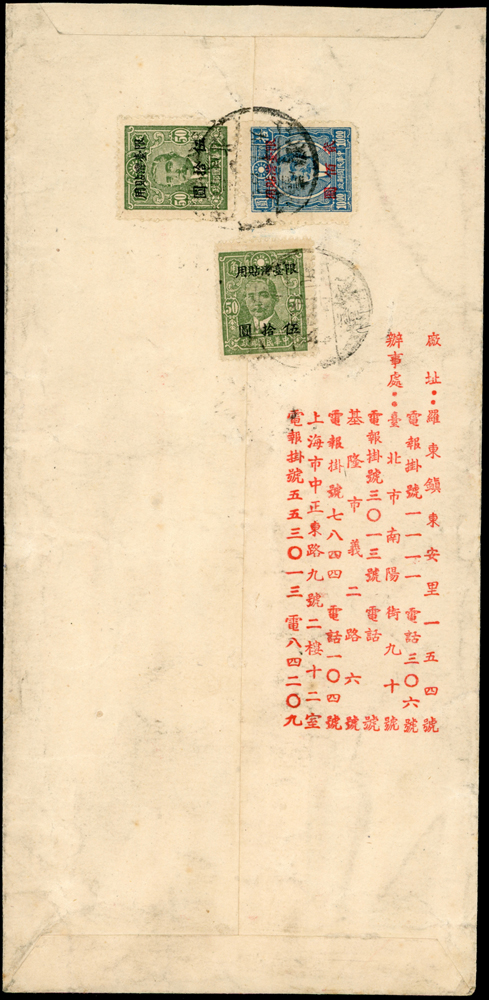 限臺灣貼用
伍拾圓
50
50
限臺灣貼用
限臺灣貼用
50
50
伍拾圓
中華民國郵政
廠址：羅東鎮東安里一五四號
電報掛號一一一一 電話三〇六號
辦事處：臺北市南陽街九十號
電報掛號三〇一三號 電話 號
基隆市義二路六號
電報掛號七八四四 電話一〇四號
上海市中正東路九號二樓十二室
電報掛號五五三〇一三 電八四二〇九